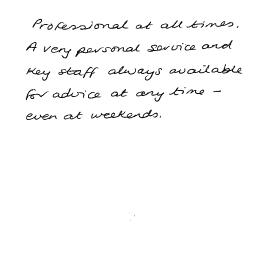 Professional at all times.
A very personal service and
key staff always available
for advice at any time –
even at weekends.